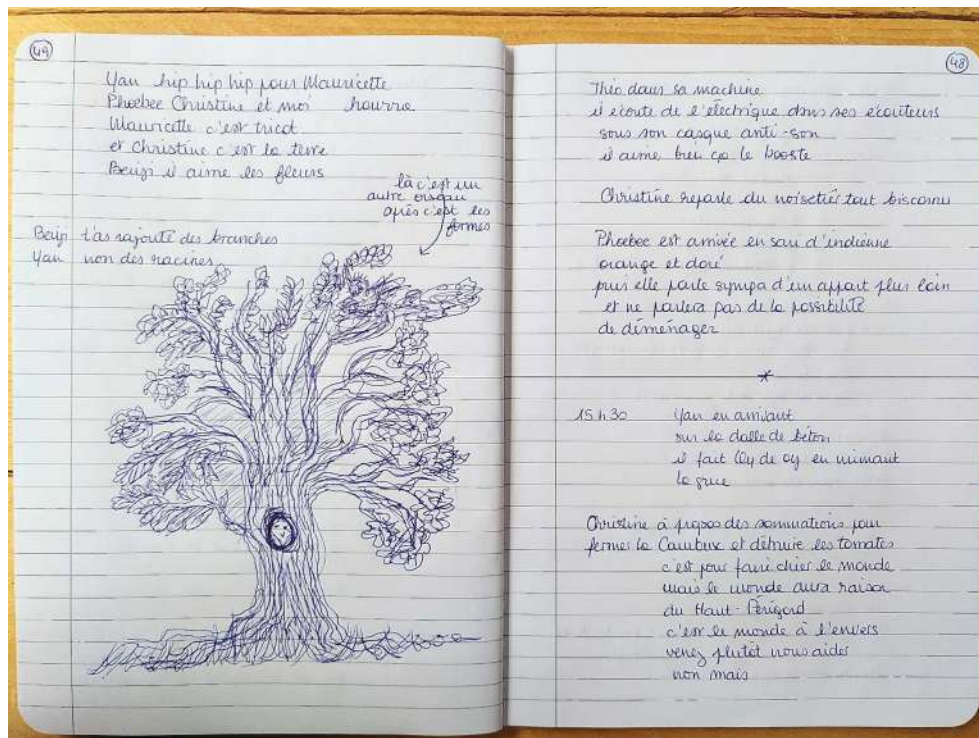 49
Yan hip hip hip pour Mauricette
Phoebee Christine et moi hourra
Mauricette c'est tricot
et Christine c'est la terre
Benji il aime les fleurs
là c'est un
autre oiseau
après c'est les
formes
Benji t'as rajouté des branches
Yan non des racines
48
Théo dans sa machine
il écoute de l'électrique dans ses écouteurs
sous son casque anti-son
il aime bien ça le booste
Christine reparle du noisetier tout biscornu
Phoebee est arrivée en sari d'indienne
orange et doré
puis elle parle sympa d'un appart plus loin
et ne parlera pas de la possibilité
de déménager
*
15h30 Yan en arrivant
sur la dalle de béton
il fait oy de oy en mimant
la grue
Christine à propos des sommations pour
fermer la et détruire les tomates
c'est pour faire chier le monde
mais le monde aura raison
du Haut-Périgord
c'est le monde à l'envers
venez plutôt nous aider
non mais